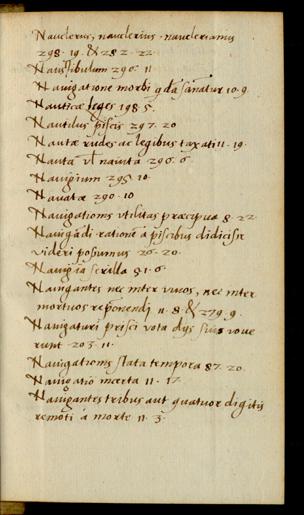 Nauclerus, nauclerius, naucleriamus
298. 19. & 282. 22.
Naustibulum 296. 11
Navigatione morbi qdā sanātur 10. 9.
Nauticæ leges 198. 5.
Nautilus piscis 297. 20
Nautæ rudes ac legibus taxati 11. 19.
Nauta vl navita 296. 6.
Navigium 295. 10.
Navatæ 290. 10
Navigationis vtilitas præcipua 8. 22.
Navigādi ratione à piscibus didicisse
videri possumus 26. 20.
Navigia sutilla 51. 6.
Navigantes nec inter vivos, nec inter
mortuos reponendj 11. 8. & 279. 9.
Navigaturi prisci vota dijs suis vove
runt 203. 11.
Navigationis stata tempora 87. 20.
Navigatio incerta 11. 17.
Navigantes tribus aut quatuor digitis
remoti à morte 11. 3.